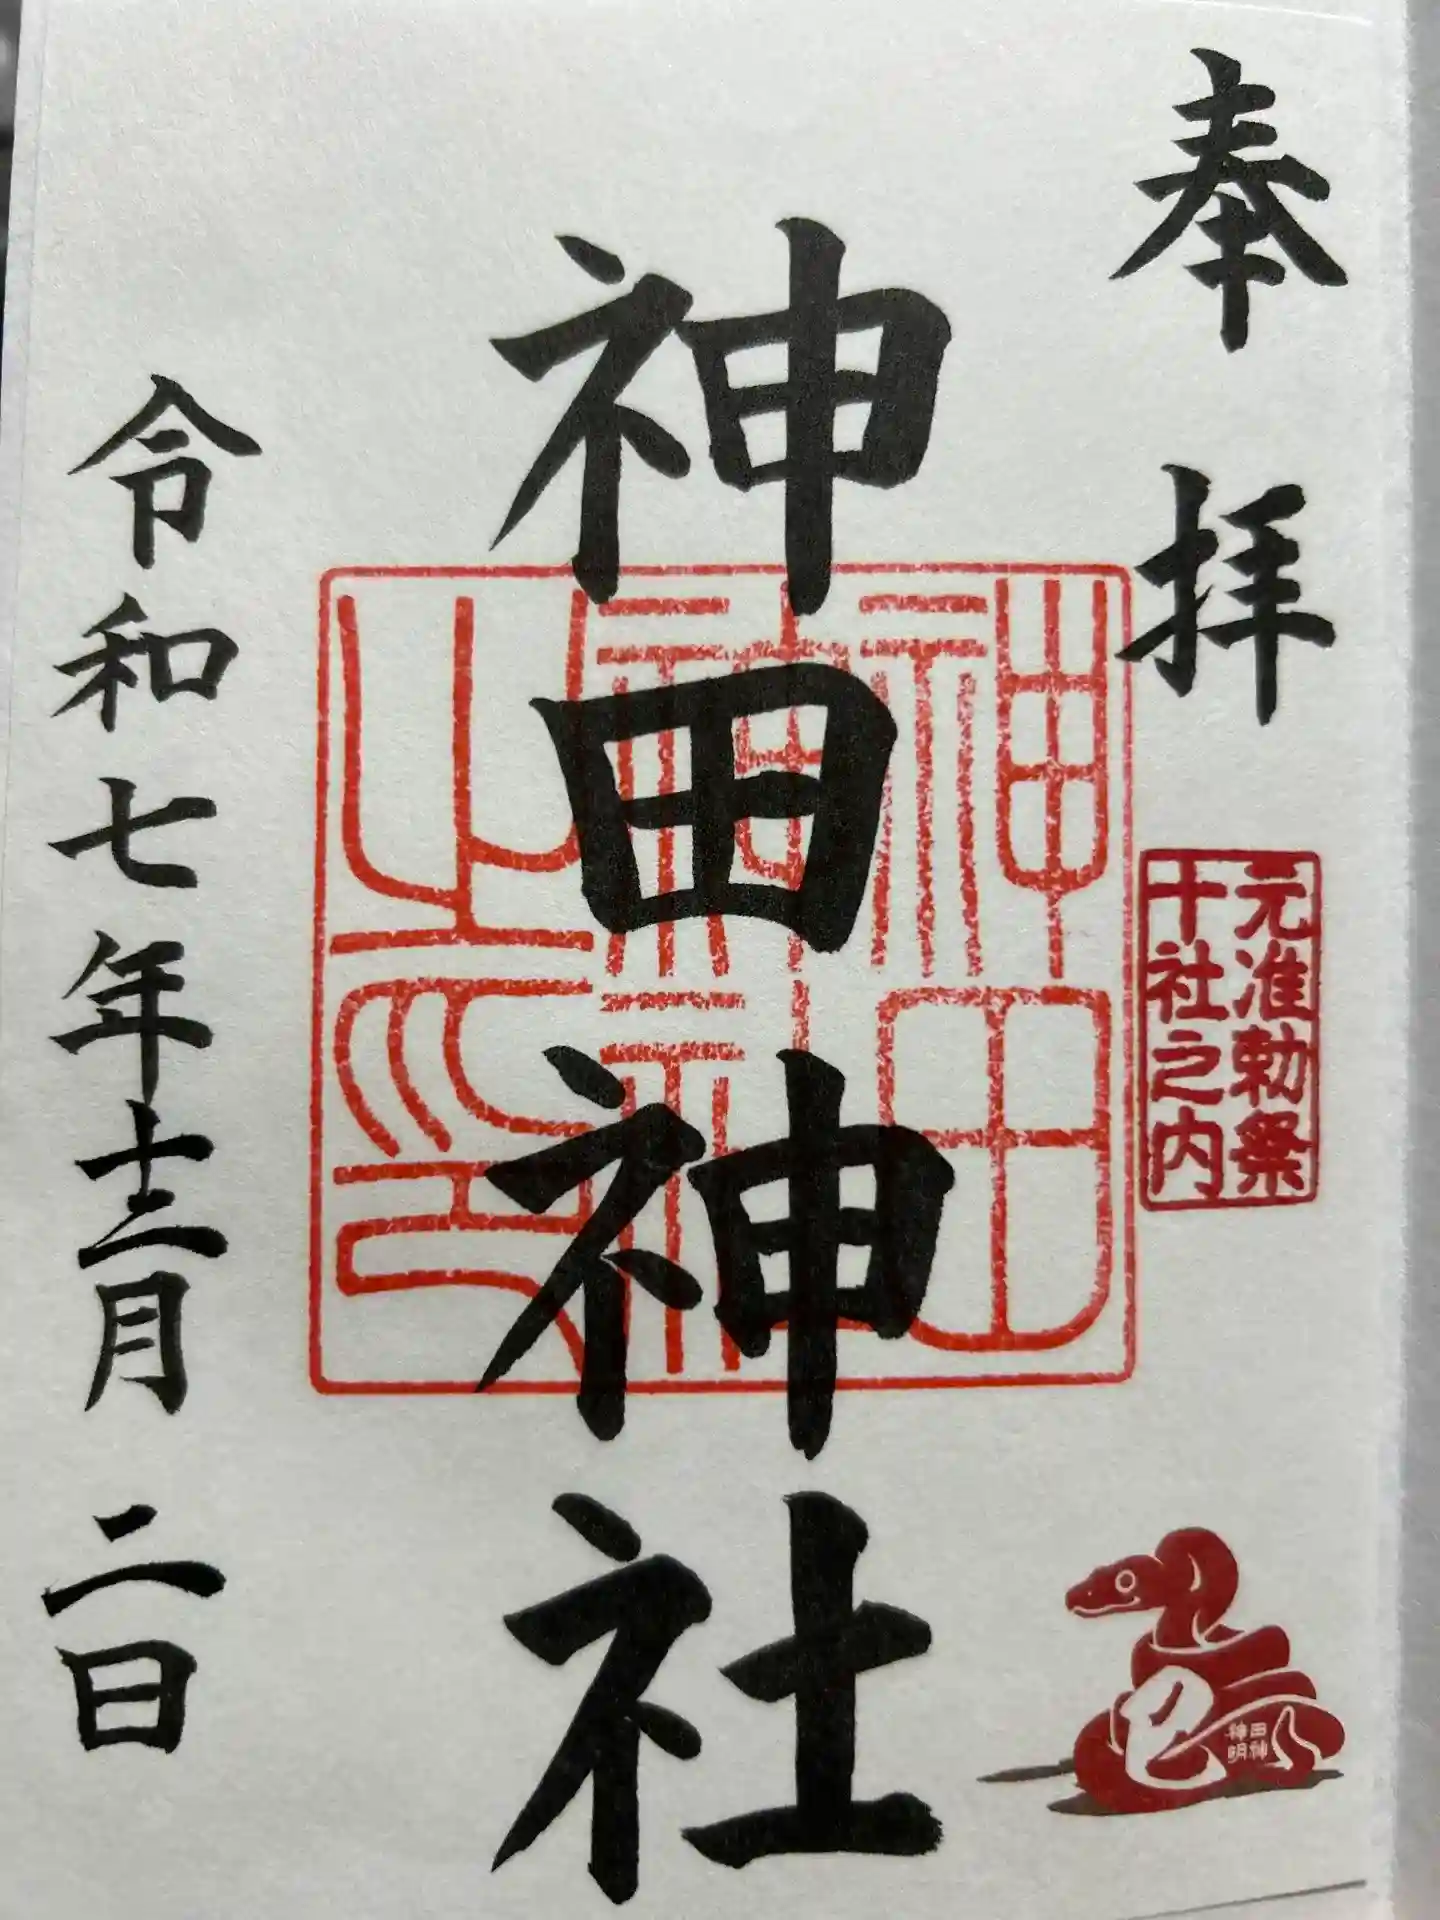 奉拝
元准勅祭
十社之内
巳
神田神明
神田神社
神田神社之印
令和七年十二月二日